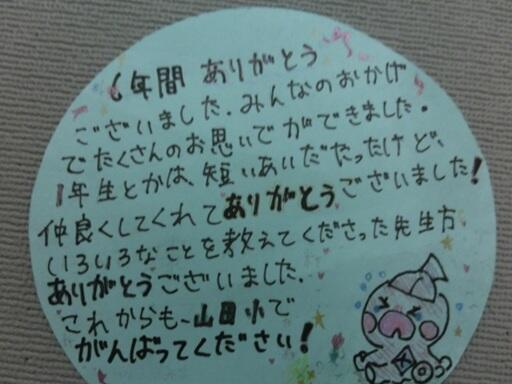 6年間 ありがとう
ございました. みんなのおかげ
でたくさんのお思いでができました.
1年生とかは、短いあいだだったけど、
仲良くしてくれてありがとうございました!
いろいろなことを教えてくださった先生方
ありがとうございました.
これからも~山田小で
がんばってください!